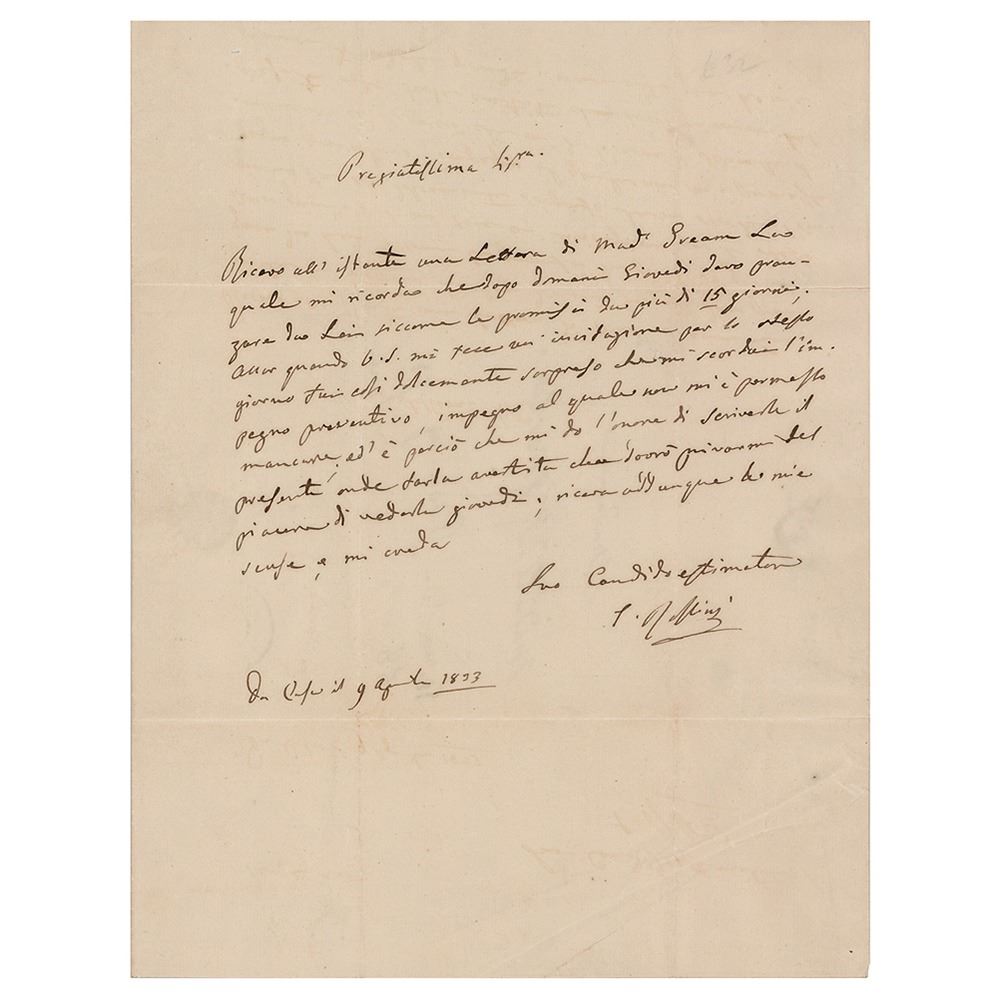 Pregiatissima Sig.ra
Ricevo all' istante una Lettera di Mad.e La
quale mi ricorda che dopo domani Giovedi devo pran-
zare da Lei siccome le promisi da più di 15 giorni;
allor quando V.S. mi fece un' invitazione per lo stesso
giorno fui così dolcemente sorpreso che mi scordai l'im-
pegno preventivo, impegno al quale non mi è permesso
mancare, ed' è perciò che mi do l'onore di scriverle il
presente onde farla avertita che dovrò privarmi del
piacere di vederla giovedi; riceva addunque le mie
scuse e mi creda
Suo Candido estimatore
G. Rossini
Da Casa il 9 Aprile 1833